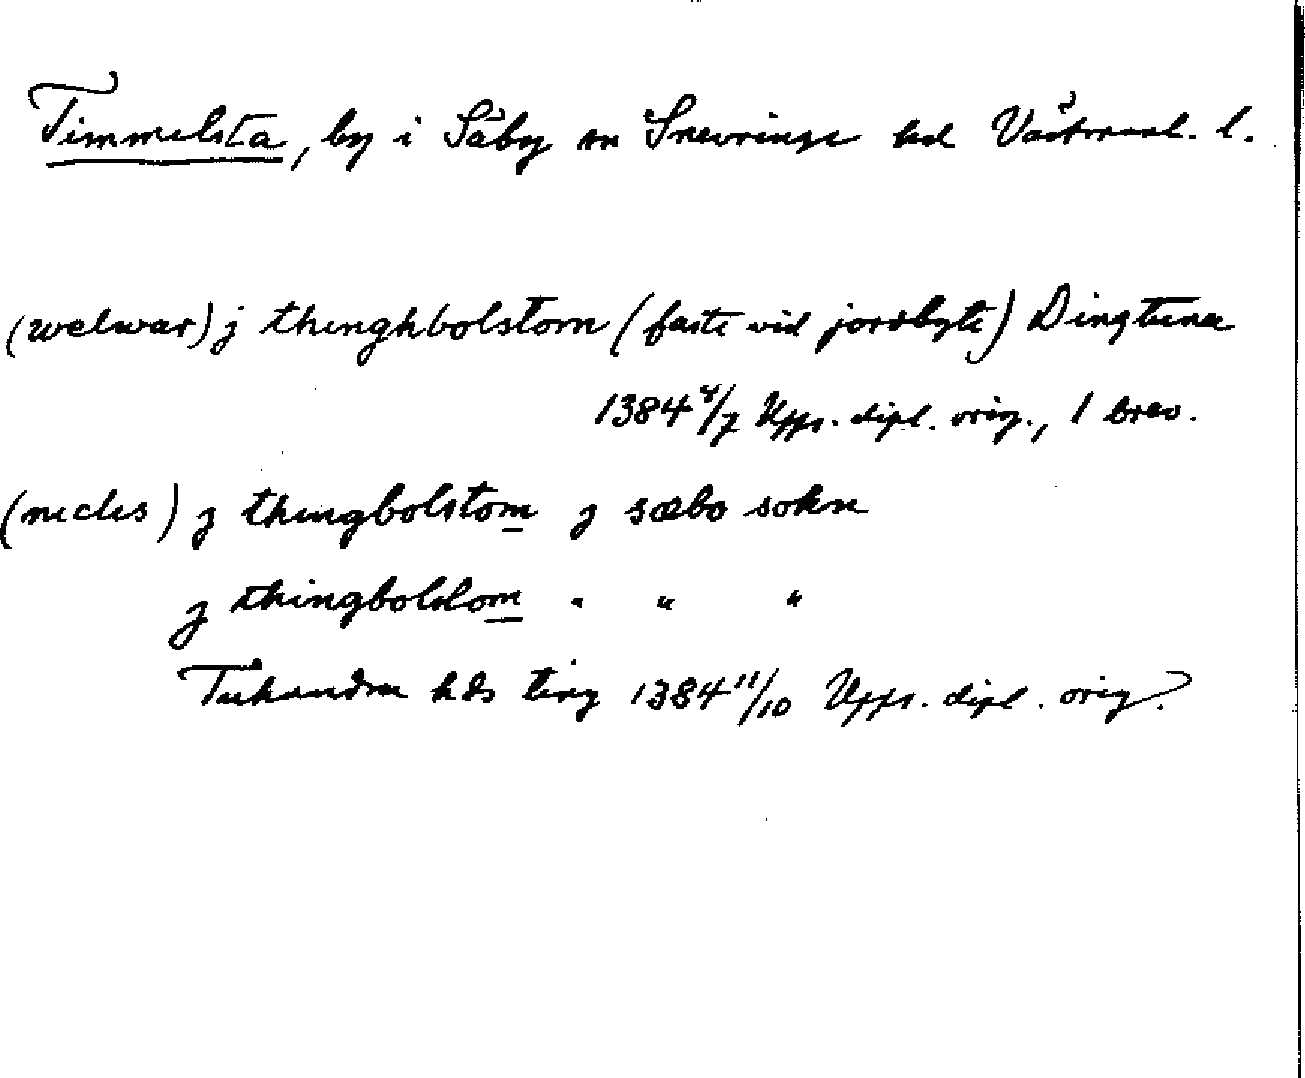 Timmelsta, by i Säby sn Snevringe hd Västmanl. l.
(welwar) j thinghbolstom (faste vid jordbyte) Dingtuna
1384 4/7 Upps. dipl. orig., 1 brev.
(niclis) j thingbolstom j sæbo sokn
j thingbolstom " " "
Tuhundra hds ting 1384 11/10 Upps. dipl. orig.